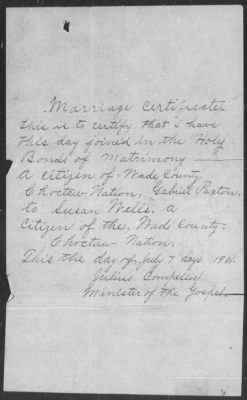 Marriage Certificate
this is to certify that I have
this day joined in the Holy
Bonds of Matrimony
A citizen of Wade County
Choctaw Nation, Gabriel Paxton.
to Susan Wells. a
Citizen of the, Wade County,
Choctaw Nation,
This the day of, July 7 days 1901.
Julius
Minister of the Gospel